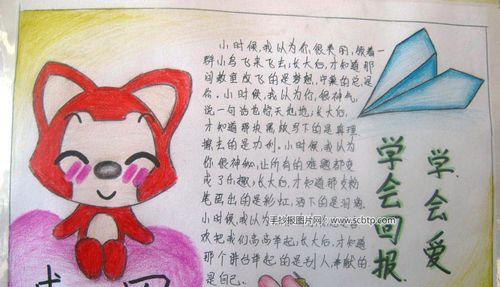 小时候,我认为你很美丽,领着一
群小鸟飞来飞去,长大后,才知道那
间教室放飞的是梦想,守巢的总是
你。小时候,我认为你很神气,
说一句话也惊天动地,长大后,
才知道那块黑板写下的是真理
擦去的是功利。小时候,我认为
你很神秘,让所有的难题都变
成了乐趣,长大后,才知道那支粉
笔画出的是彩虹,洒下的是泪滴。
小时候,我认为
欢把我们高高举起,长大后,才知道
那个讲台举起的是别人,奉献的
是自己。
学会爱
学会回报
手抄报图片网 www.scbtp.com